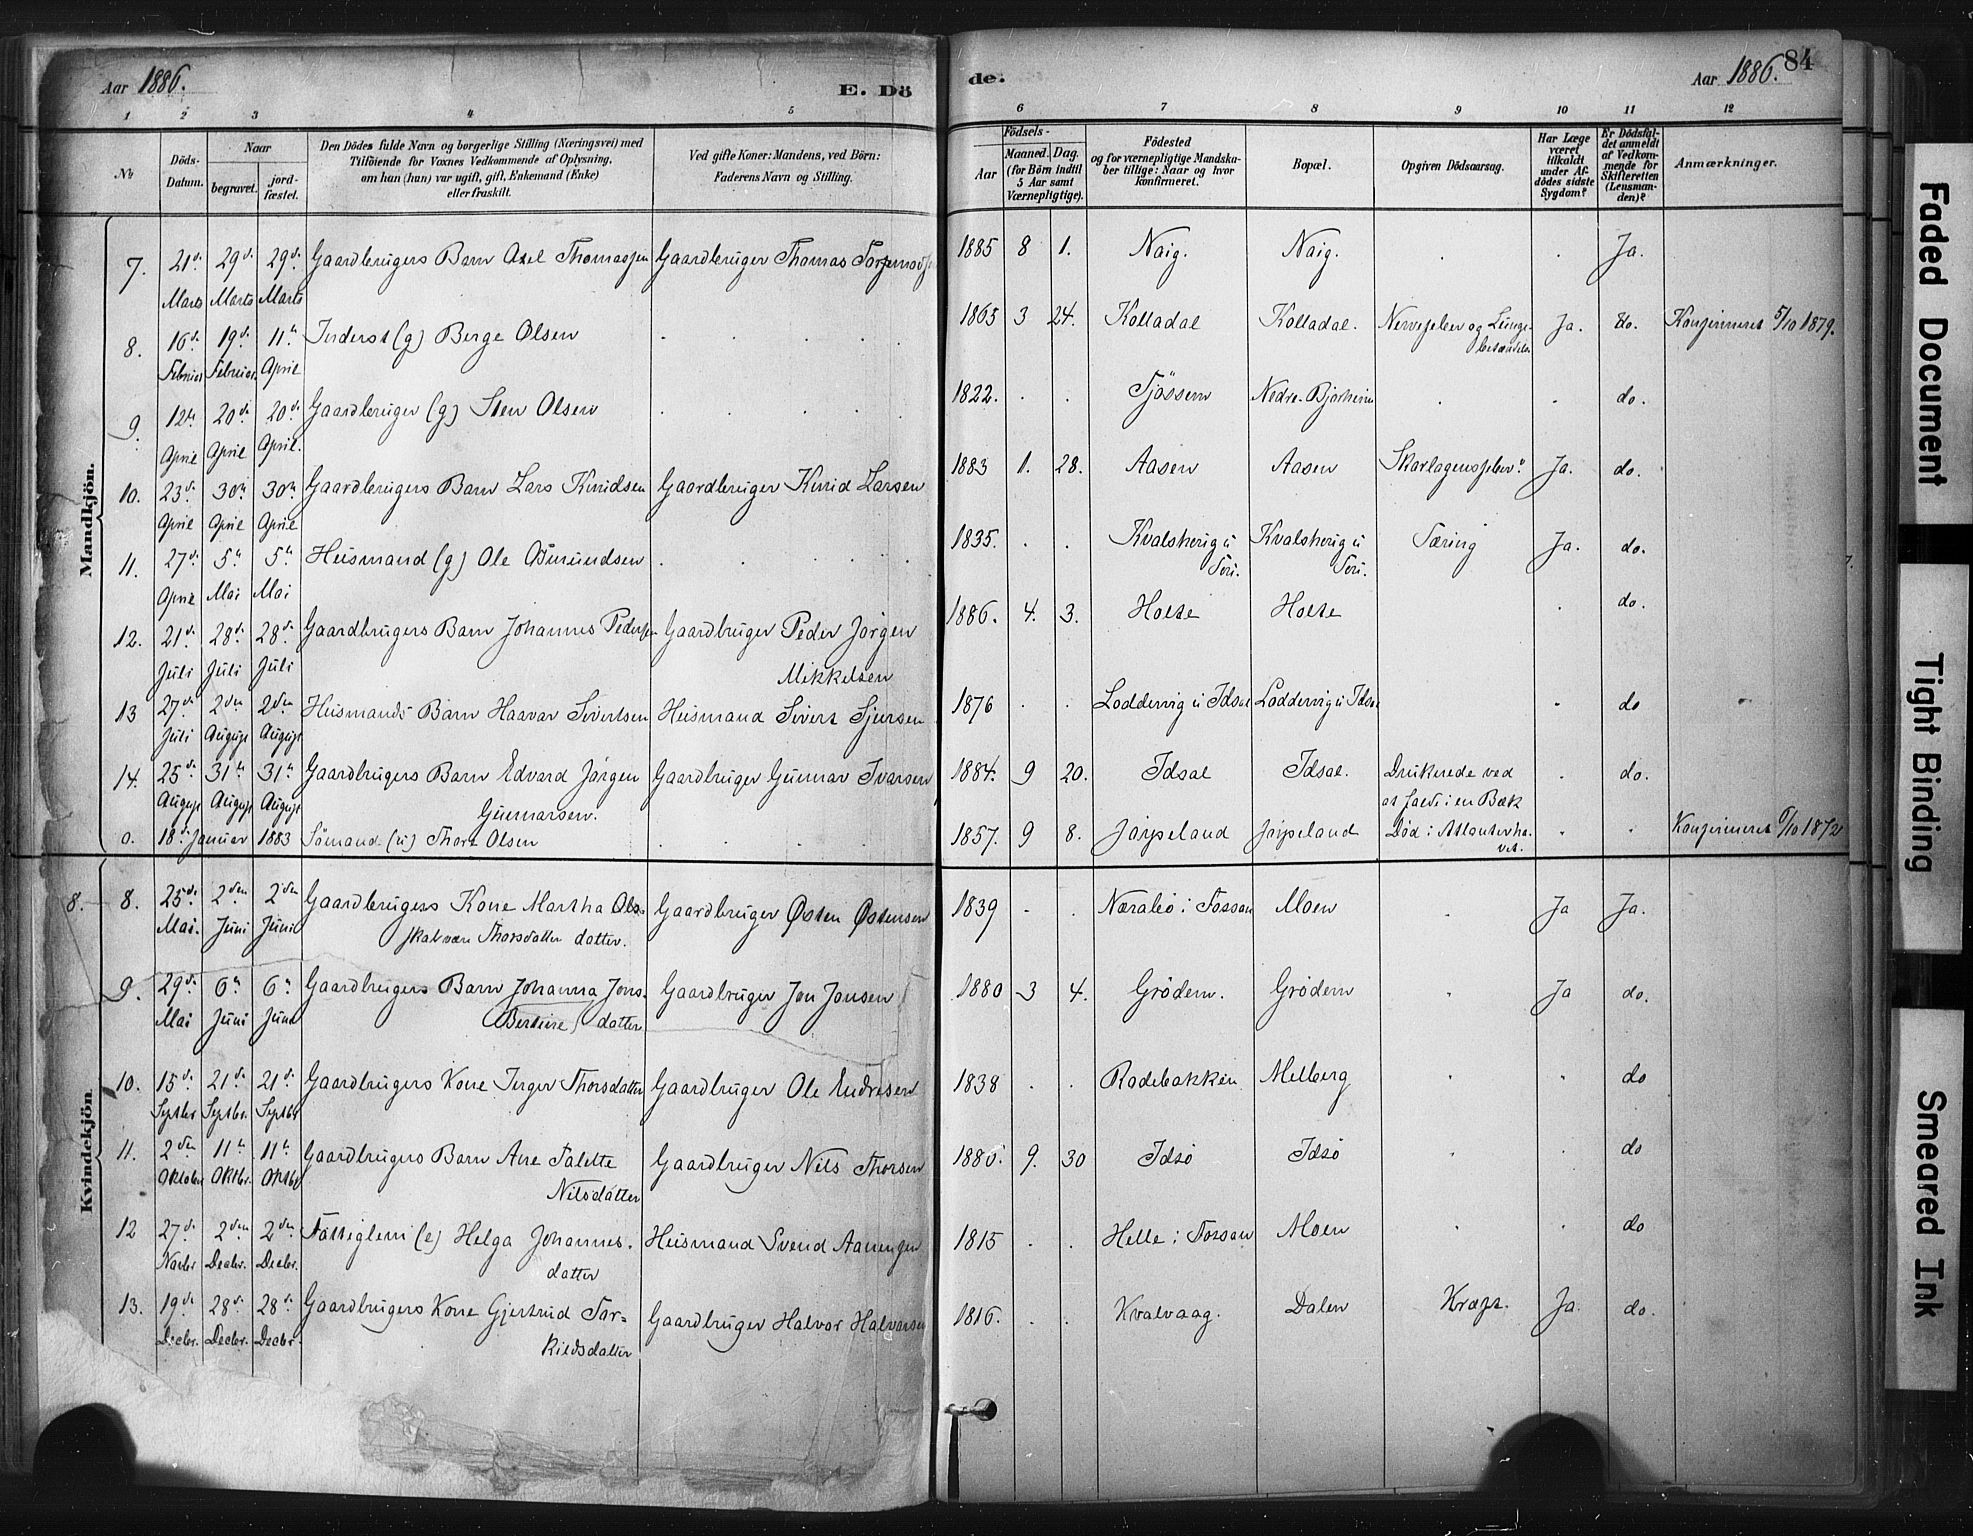 Aar 1886. E. Dö
1 2 3 4 5
No
Döds-Datum.
Naar
begravet.
jord-fæstet.
Den Dödes fulde Navn og borgerlige Stilling (Næringsvei) med
Tilföiende for Voxnes Vedkommende af Oplysning,
om han (hun) var ugift, gift, Enkemand (Enke)
eller fraskilt.
Ved gifte Koner: Mandens, ved Börn:
Faderens Navn og Stilling.
Mandkjön.
7. 21de 29de 29de Gaardbrugers Barn Axel Thomassen Gaardbruger Thomas
Marts Marts Marts
8. 16de 19de 11te Inderst (g) Berge Olsen
Februar Februar April
9. 12te 20de 20de Gaardbruger (g) Sten Olsen
April April April.
10. 23de 30te 30te Gaardbrugers Barn Lars Knudsen Gaardbruger Knud Larsen
April April April
11. 27de 5te 5te Husmand (g) Ole Osmundsen
April Mai Mai
12. 21de 28de 28de Gaardbrugers Barn Johannes Pedersen Gaardbruger Peder Jørgen
Juli Juli Juli Mikkelsen
13 27de 2den 2den Husmands Barn Haavar Sivertsen Husmand Sivert Sjursen
Juli August August
14. 25de 31te 31te Gaardbrugers Barn Edvard Jørgen Gaardbruger Gunnar Ivarsen
August August August Gunnarsen.
0. 18de Januar 1883 Sömand (u) Thore Olsen
Kvindekjön.
8. 8. 25de 2den 2den Gaardbrugers Kone Martha Ols- Gaardbruger Østen Østensen
Mai. Juni Juni skal være Thorsdatter datter.
9. 29de 6te 6te Gaardbrugers Barn Johanna Jons- Gaardbruger Jon Jonsen
Mai Juni Juni Bertine datter
10. 15de 21de 21de Gaardbrugers Kone Inger Thorsdatter Gaardbruger Ole Endresen
Septbr Septbr. Septbr
11. 2den 11te 11te Gaardbrugers Barn Ane Talette Gaardbruger Nils Thorsen
Oktober Oktbr. Oktbr Nilsdatter
12 27de 2den 2den Fattiglem (e) Helga Johannes- Husmand Svend Aanensen
Novbr Decbr. Decbr. datter
13. 19de 28de 28de Gaardbrugers Kone Gjertrud Tor- Gaardbruger Halvor Halvorsen
Decbr. Decbr. Decbr. kildsdatter
de. Aar 1886. 84
6 7 8 9 10 11 12
Födsels-
Aar
Maaned. Dag.
(for Börn indtil
5 Aar samt
Værnepligtige).
Födested
og for værnepligtige Mandsku-
ber tillige: Naar og hvor
konfirmeret.
Bopæl.
Opgiven Dödsaarsag.
Har Læge
været
tilkaldt
under Af-
dödes sidste
Sygdom?
Er Dödsfal-
det anmeldt
af Vedkom-
mende for
Skifteretten
(Lensman-
den)?
Anmærkninger.
1885 8 1. Naig. Naig. Ja.
1865 3 24. Kolladal Kolladal. Nervefeber og Lunge- Ja. do. Konfirmeret 5/10 1879.
betændelse
1822. Tjössem Nedre-Bjorheim do.
1883 1. 28. Aasen Aasen Skarlagensfeber Ja. do.
1835. Kvalsheig u Kvalsheig u Tæring Ja. do.
Tou. Tou.
1886. 4. 3. Holte Holte do.
1876 Loddervig u Idsal Loddervig u Idsal do
1884. 9 20. Idsal Idsal. Druknede ved do.
at falde i en Bæk
1857. 9 8. Jørpeland Jørpeland Død i Atlanterha- Konfirmeret 6/10 1872
vet.
1839 Nærabö i Fossan Moen Ja Ja.
1880 3 4. Grödem. Grödem Ja do.
1838 Rødebakken Melberg do
1886. 9. 30 Idsö Idsö do
1815 Helle i Fossan Moen do
1816. Kvalvaag. Dalen Kræft. Ja. do.
Faded Document
Tight Binding
Smeared Ink